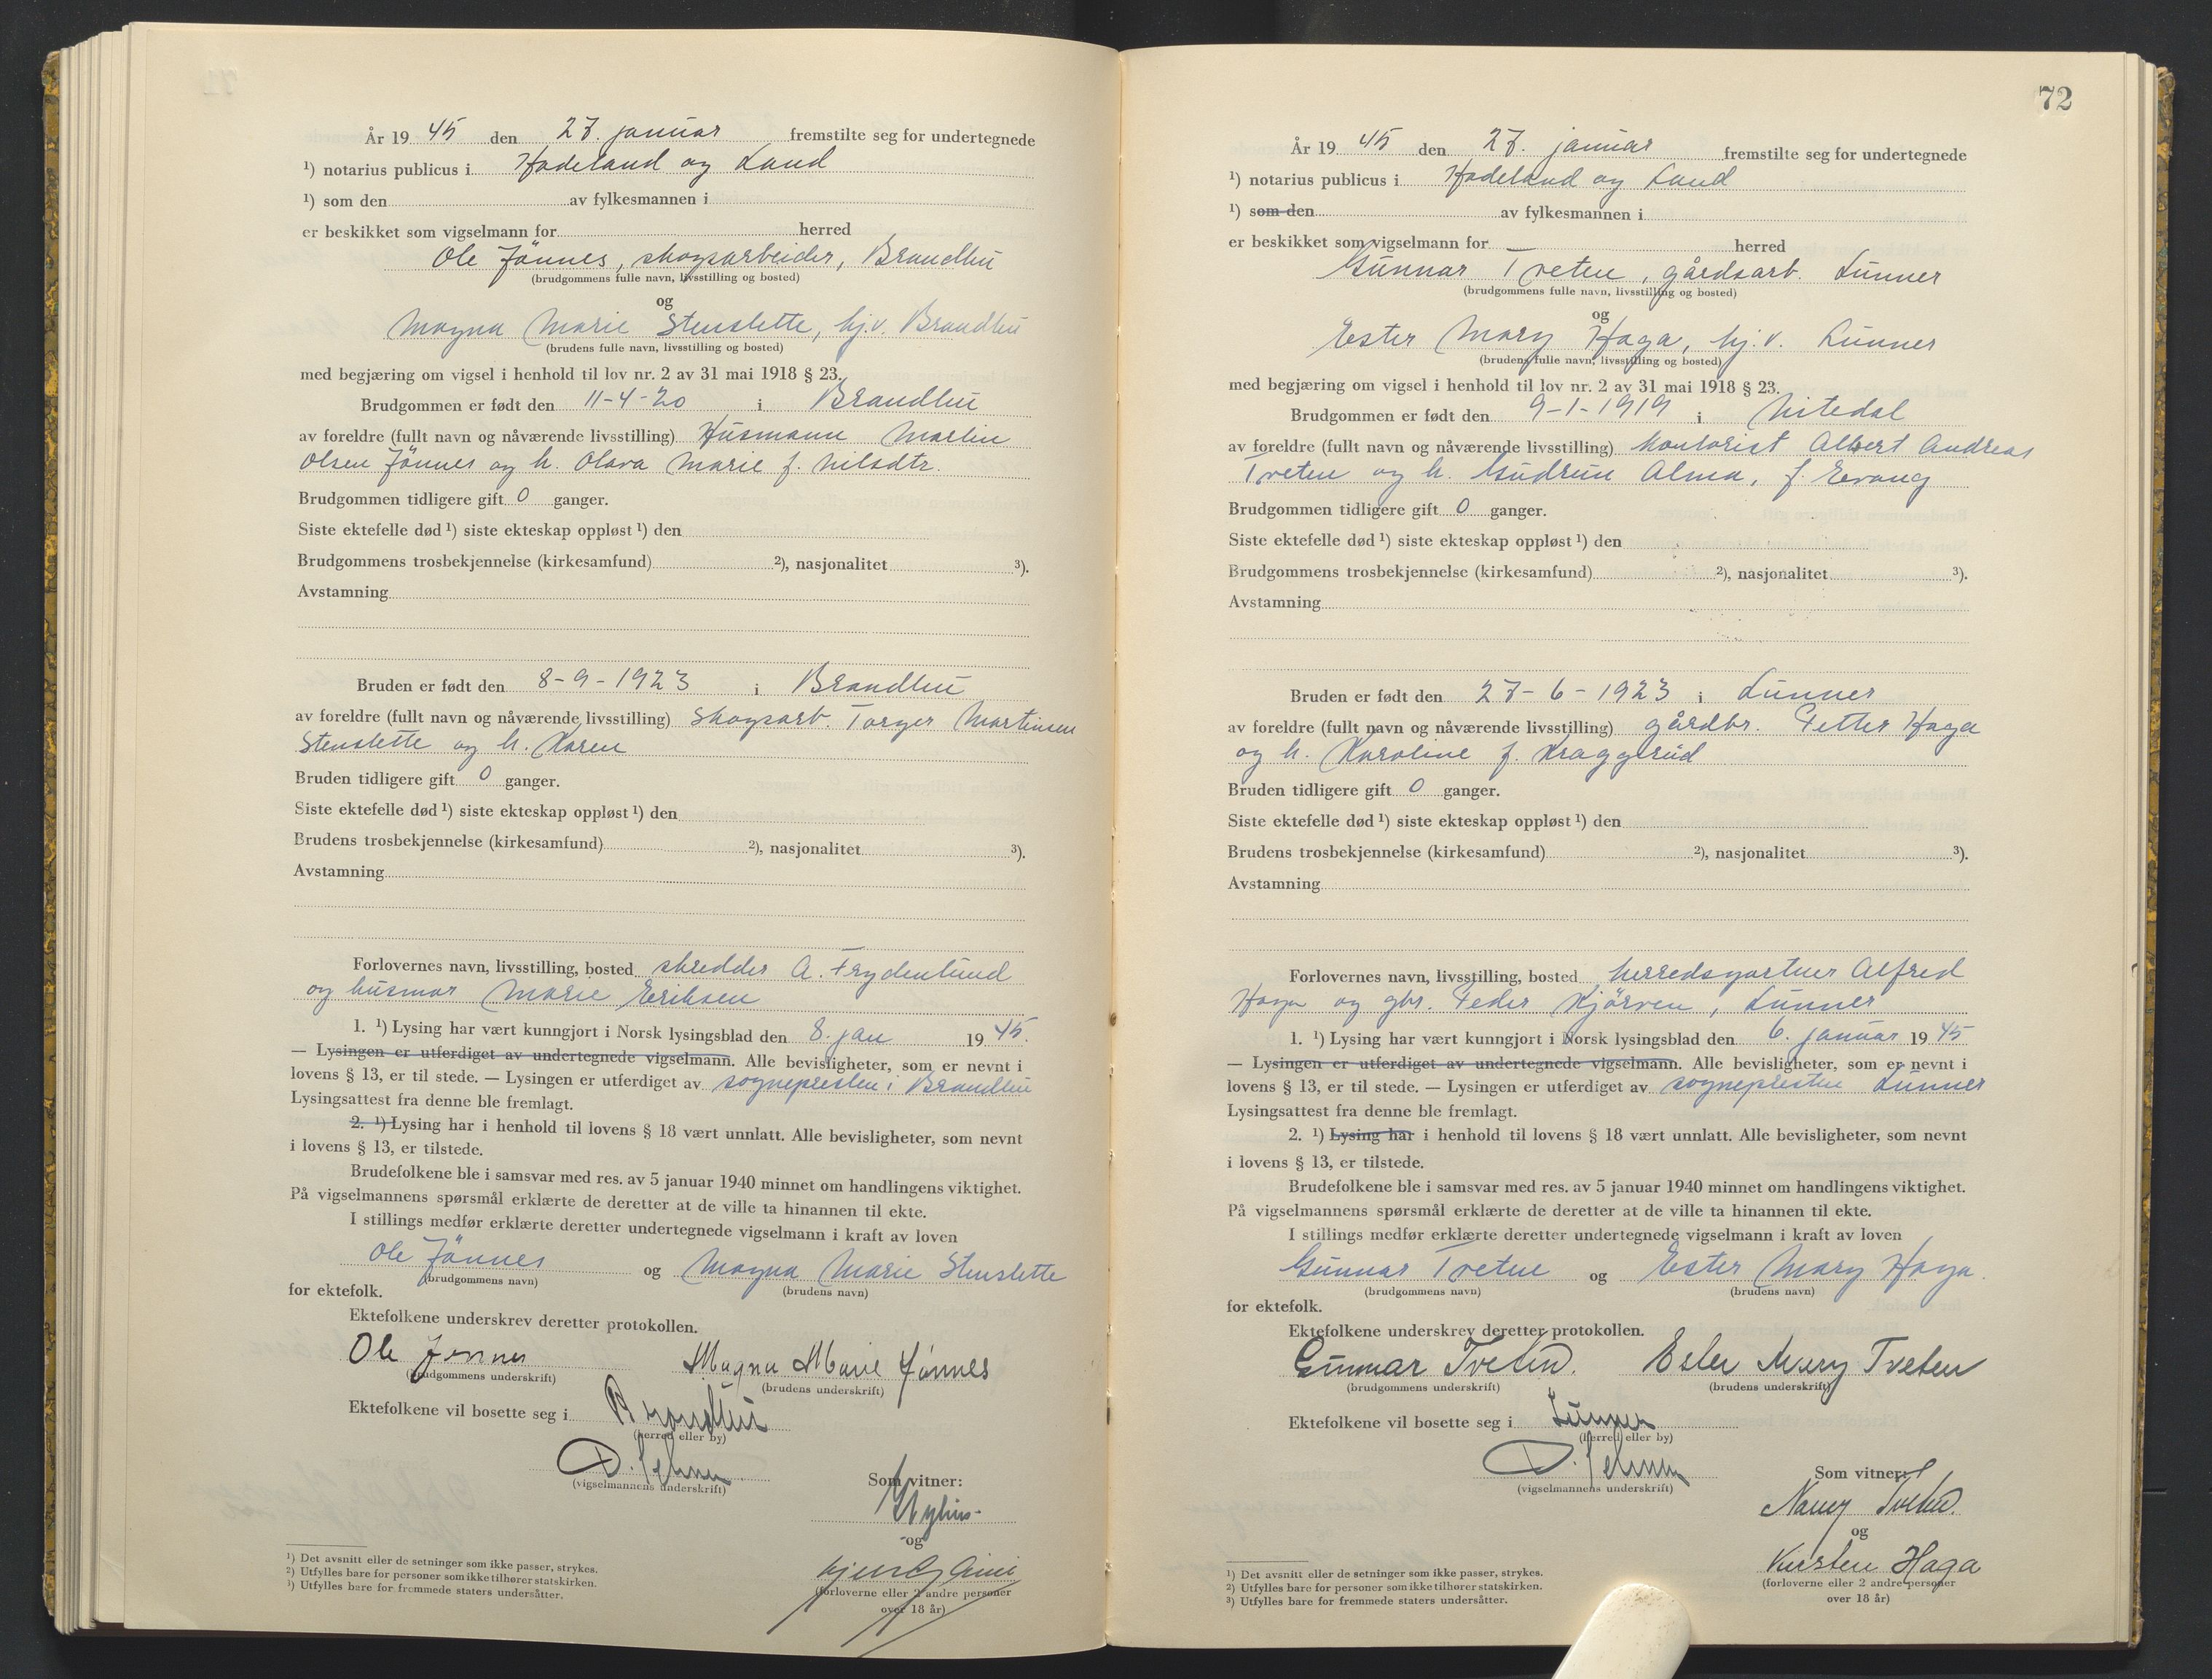 År 19 45 den 27. januar fremstilte seg for undertegnede
¹) notarius publicus i Hadeland og Land
¹) som den av fylkesmannen i
er beskikket som vigselmann for herred
Ole Jönnes, skogsarbeider, Brandbu
(brudgommens fulle navn, livsstilling og bosted)
og
Magna Marie Stenslette, hj.v. Brandbu
(brudens fulle navn, livsstilling og bosted)
med begjæring om vigsel i henhold til lov nr. 2 av 31 mai 1918 § 23.
Brudgommen er født den 11-4-20 i Brandbu
av foreldre (fullt navn og nåværende livsstilling) Husmann Martin
Olsen Jönnes og h. Olava Marie f. Nilsdtr.
Brudgommen tidligere gift 0 ganger.
Siste ektefelle død ¹) siste ekteskap oppløst ¹) den
Brudgommens trosbekjennelse (kirkesamfund) ²), nasjonalitet ³).
Avstamning
Bruden er født den 8-9-1923 i Brandbu
av foreldre (fullt navn og nåværende livsstilling) skogsarb. Torger Martinsen
Stenslette og h. Karen
Bruden tidligere gift 0 ganger.
Siste ektefelle død ¹) siste ekteskap oppløst ¹) den
Brudens trosbekjennelse (kirkesamfund) ²), nasjonalitet ³).
Avstamning
Forlovernes navn, livsstilling, bosted skredder A. Frydenlund
og husmor Marie Eriksen
1. ¹) Lysing har vært kunngjort i Norsk lysingsblad den 8. jan 19 45.
— Lysingen er utferdiget av undertegnede vigselmann. Alle bevisligheter, som er nevnt i
lovens § 13, er til stede. — Lysingen er utferdiget av sognepresten i Brandbu
Lysingsattest fra denne ble fremlagt.
2. ¹) Lysing har i henhold til lovens § 18 vært unnlatt. Alle bevisligheter, som nevnt
i lovens § 13, er tilstede.
Brudefolkene ble i samsvar med res. av 5 januar 1940 minnet om handlingens viktighet.
På vigselmannens spørsmål erklærte de deretter at de ville ta hinannen til ekte.
I stillings medfør erklærte deretter undertegnede vigselmann i kraft av loven
Ole Jönnes og Magna Marie Stenslette
(brudgommens navn) (brudens navn)
for ektefolk.
Ektefolkene underskrev deretter protokollen.
Ole Jønnes Magna Marie Jønnes
(brudgommens underskrift) (brudens underskrift)
Ektefolkene vil bosette seg i Brandbu
(herred eller by)
(vigselmannens underskrift)
Som vitner:
og
(forloverne eller 2 andre personer
over 18 år)
¹) Det avsnitt eller de setninger som ikke passer, strykes.
²) Utfylles bare for personer som ikke tilhører statskirken.
³) Utfylles bare for fremmede staters undersåtter.
72
År 19 45 den 27. januar fremstilte seg for undertegnede
¹) notarius publicus i Hadeland og Land
¹) som den av fylkesmannen i
er beskikket som vigselmann for herred
Gunnar Tveten, gårdsarb. Lunner
(brudgommens fulle navn, livsstilling og bosted)
og
Ester Mary Haga, hj.v. Lunner
(brudens fulle navn, livsstilling og bosted)
med begjæring om vigsel i henhold til lov nr. 2 av 31 mai 1918 § 23.
Brudgommen er født den 9-1-1919 i Nitedal
av foreldre (fullt navn og nåværende livsstilling) kontorist Albert Andreas
Tveten og h. Gudrun Alma, f. Evang
Brudgommen tidligere gift 0 ganger.
Siste ektefelle død ¹) siste ekteskap oppløst ¹) den
Brudgommens trosbekjennelse (kirkesamfund) ²), nasjonalitet ³).
Avstamning
Bruden er født den 27-6-1923 i Lunner
av foreldre (fullt navn og nåværende livsstilling) gårdbr. Petter Haga
og h. Karoline f. Kraggerud
Bruden tidligere gift 0 ganger.
Siste ektefelle død ¹) siste ekteskap oppløst ¹) den
Brudens trosbekjennelse (kirkesamfund) ²), nasjonalitet ³).
Avstamning
Forlovernes navn, livsstilling, bosted herredsgartner Alfred
Haga og gbr. Peder Kjörven, Lunner
1. ¹) Lysing har vært kunngjort i Norsk lysingsblad den 6. januar 19 45
— Lysingen er utferdiget av undertegnede vigselmann. Alle bevisligheter, som er nevnt i
lovens § 13, er til stede. — Lysingen er utferdiget av sognepresten Lunner
Lysingsattest fra denne ble fremlagt.
2. ¹) Lysing har i henhold til lovens § 18 vært unnlatt. Alle bevisligheter, som nevnt
i lovens § 13, er tilstede.
Brudefolkene ble i samsvar med res. av 5 januar 1940 minnet om handlingens viktighet.
På vigselmannens spørsmål erklærte de deretter at de ville ta hinannen til ekte.
I stillings medfør erklærte deretter undertegnede vigselmann i kraft av loven
Gunnar Tveten og Ester Mary Haga.
(brudgommens navn) (brudens navn)
for ektefolk.
Ektefolkene underskrev deretter protokollen.
Gunnar Tveten. Ester Mary Tveten
(brudgommens underskrift) (brudens underskrift)
Ektefolkene vil bosette seg i Lunner
(herred eller by)
(vigselmannens underskrift)
Som vitner:
Nancy Tveten.
og
Kirsten Haga
(forloverne eller 2 andre personer
over 18 år)
¹) Det avsnitt eller de setninger som ikke passer, strykes.
²) Utfylles bare for personer som ikke tilhører statskirken.
³) Utfylles bare for fremmede staters undersåtter.